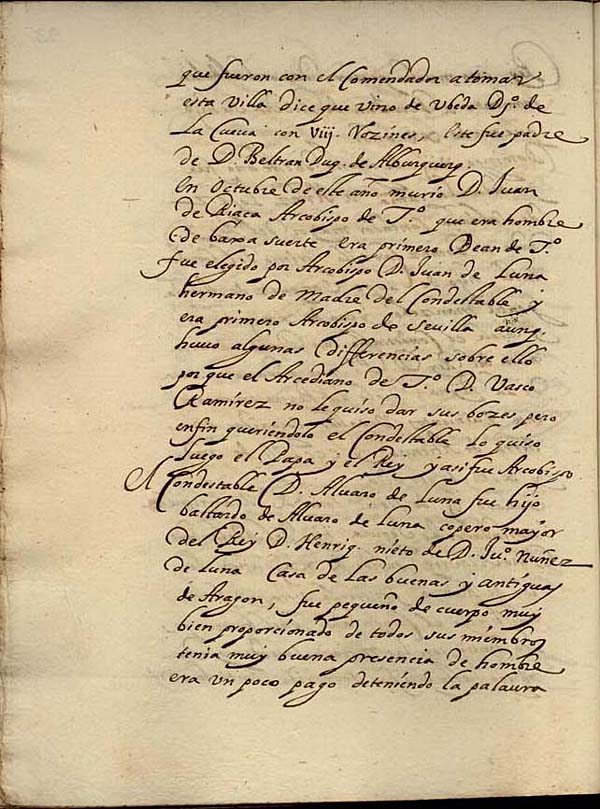 que fueron con el Comendador a tomar
esta villa dice que vino de Vbeda Dº. de
La Cueva con Viij. Rozines, Este fue padre
de D Beltran Duq. de Alburquerq.
En Octubre de este año murio D. Juan
de Riaça Arcobispo de T.º que era hombre
de baxa suerte Era primero Dean de T.º
fue elegido por Arcobispo D. Juan de Luna
hermano de Madre del Condestable y
era primero Arcobispo de Sevilla aunq.
huuo algunas differencias sobre ello
por que el Arcediano de T.º D. Vasco
Ramírez no le quiso dar sus bozes pero
enfin queriéndolo el Condestable lo quiso
luego el Papa y el Rey y asi fue Arcobispo
El Condestable D. Alvaro de Luna fue hijo
bastardo de Alvaro de Luna copero mayor
del Rey D. Henriq. nieto de D. Juº. Nuñez
de Luna Casa de las buenas y antíguas
de Aragon, fue pequeño de cuerpo muy
bien proporcionado de todos sus miembros
tenia muy buena presencia de hombre
era un poco deteniendo la palaura